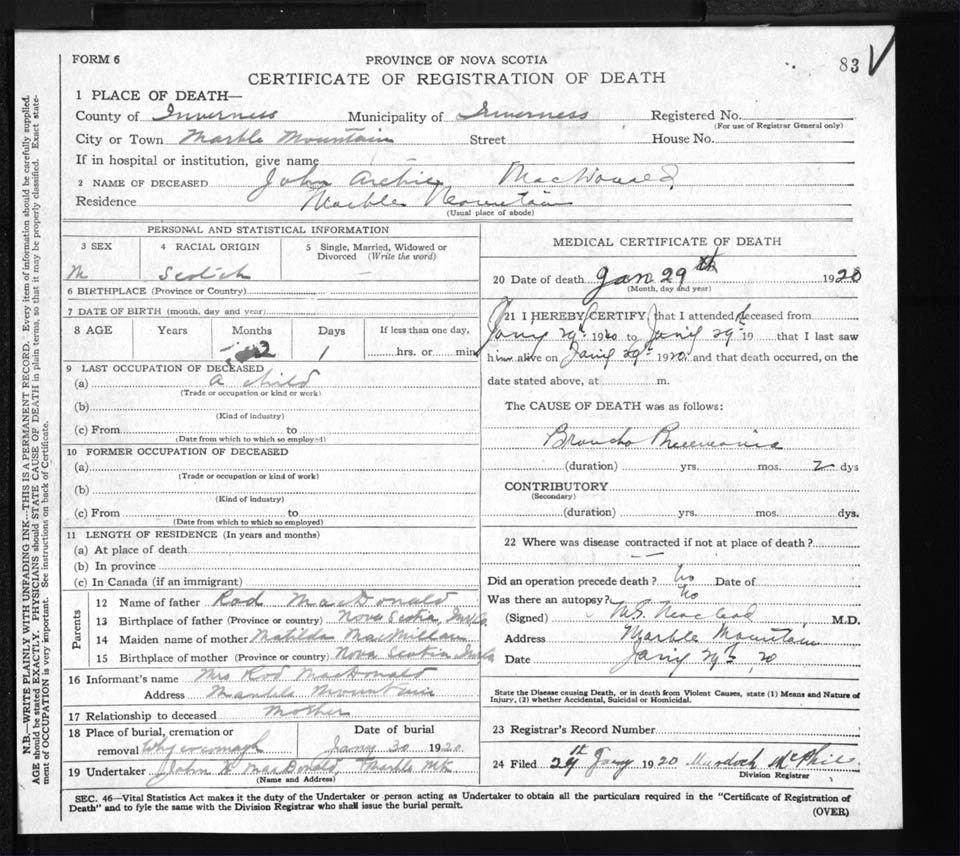 FORM 6
PROVINCE OF NOVA SCOTIA
83
CERTIFICATE OF REGISTRATION OF DEATH
1 PLACE OF DEATH—
County of Inverness Municipality of Inverness Registered No.
(For use of Registrar General only)
City or Town Marble Mountain Street House No.
If in hospital or institution, give name
2 NAME OF DECEASED John Archie MacDonald
Residence Marble Mountain
(Usual place of abode)
PERSONAL AND STATISTICAL INFORMATION
3 SEX 4 RACIAL ORIGIN 5 Single, Married, Widowed or Divorced (Write the word)
M Scotich —
6 BIRTHPLACE (Province or Country)
7 DATE OF BIRTH (month, day and year)
8 AGE Years Months Days If less than one day,
2 1 hrs. or min
9 LAST OCCUPATION OF DECEASED
(a) a child
(Trade or occupation or kind or work)
(b)
(Kind of industry)
(c) From to
(Date from which to which so employed)
10 FORMER OCCUPATION OF DECEASED
(a)
(Trade or occupation or kind of work)
(b)
(Kind of industry)
(c) From to
(Date from which to which so employed)
11 LENGTH OF RESIDENCE (In years and months)
(a) At place of death
(b) In province
(c) In Canada (if an immigrant)
Parents
12 Name of father Rod MacDonald
13 Birthplace of father (Province or country) Nova Scotia,
14 Maiden name of mother Matilda MacMillan
15 Birthplace of mother (Province or country) Nova Scotia
16 Informant's name Mrs Rod MacDonald
Address Mountain
17 Relationship to deceased Mother
18 Place of burial, cremation or Date of burial
removal Whycocomagh Jany 30 1920
19 Undertaker John MacDonald, Marble Mtn
(Name and Address)
MEDICAL CERTIFICATE OF DEATH
20 Date of death Jan 29th 1920
(Month, day and year)
21 I HEREBY CERTIFY that I attended deceased from
Jany 29th 1920 to Jany 29th 19 that I last saw
him alive on Jany 29th 1920 and that death occurred, on the
date stated above, at m.
The CAUSE OF DEATH was as follows:
Broncho Pneumonia
(duration) yrs. mos. 2 dys
CONTRIBUTORY
(Secondary)
(duration) yrs. mos. dys.
22 Where was disease contracted if not at place of death?
—
Did an operation precede death? No Date of
Was there an autopsy? No
(Signed) MacLeod M.D.
Address Marble Mountain
Date Jany 29th, 20
State the Disease causing Death, or in death from Violent Causes, state (1) Means and Nature of
Injury, (2) whether Accidental, Suicidal or Homicidal.
23 Registrar's Record Number
24 Filed 29th Jany 1920 Murdoch McPhie
Division Registrar
SEC. 46—Vital Statistics Act makes it the duty of the Undertaker or person acting as Undertaker to obtain all the particulars required in the "Certificate of Registration of
Death" and to fyle the same with the Division Registrar who shall issue the burial permit.
(OVER)
N.B.—WRITE PLAINLY WITH UNFADING INK—THIS IS A PERMANENT RECORD. Every item of information should be carefully supplied.
AGE should be stated EXACTLY. PHYSICIANS should STATE CAUSE OF DEATH in plain terms, so that it may be properly classified. Exact state-
ment of OCCUPATION is very important. See instructions on back of Certificate.